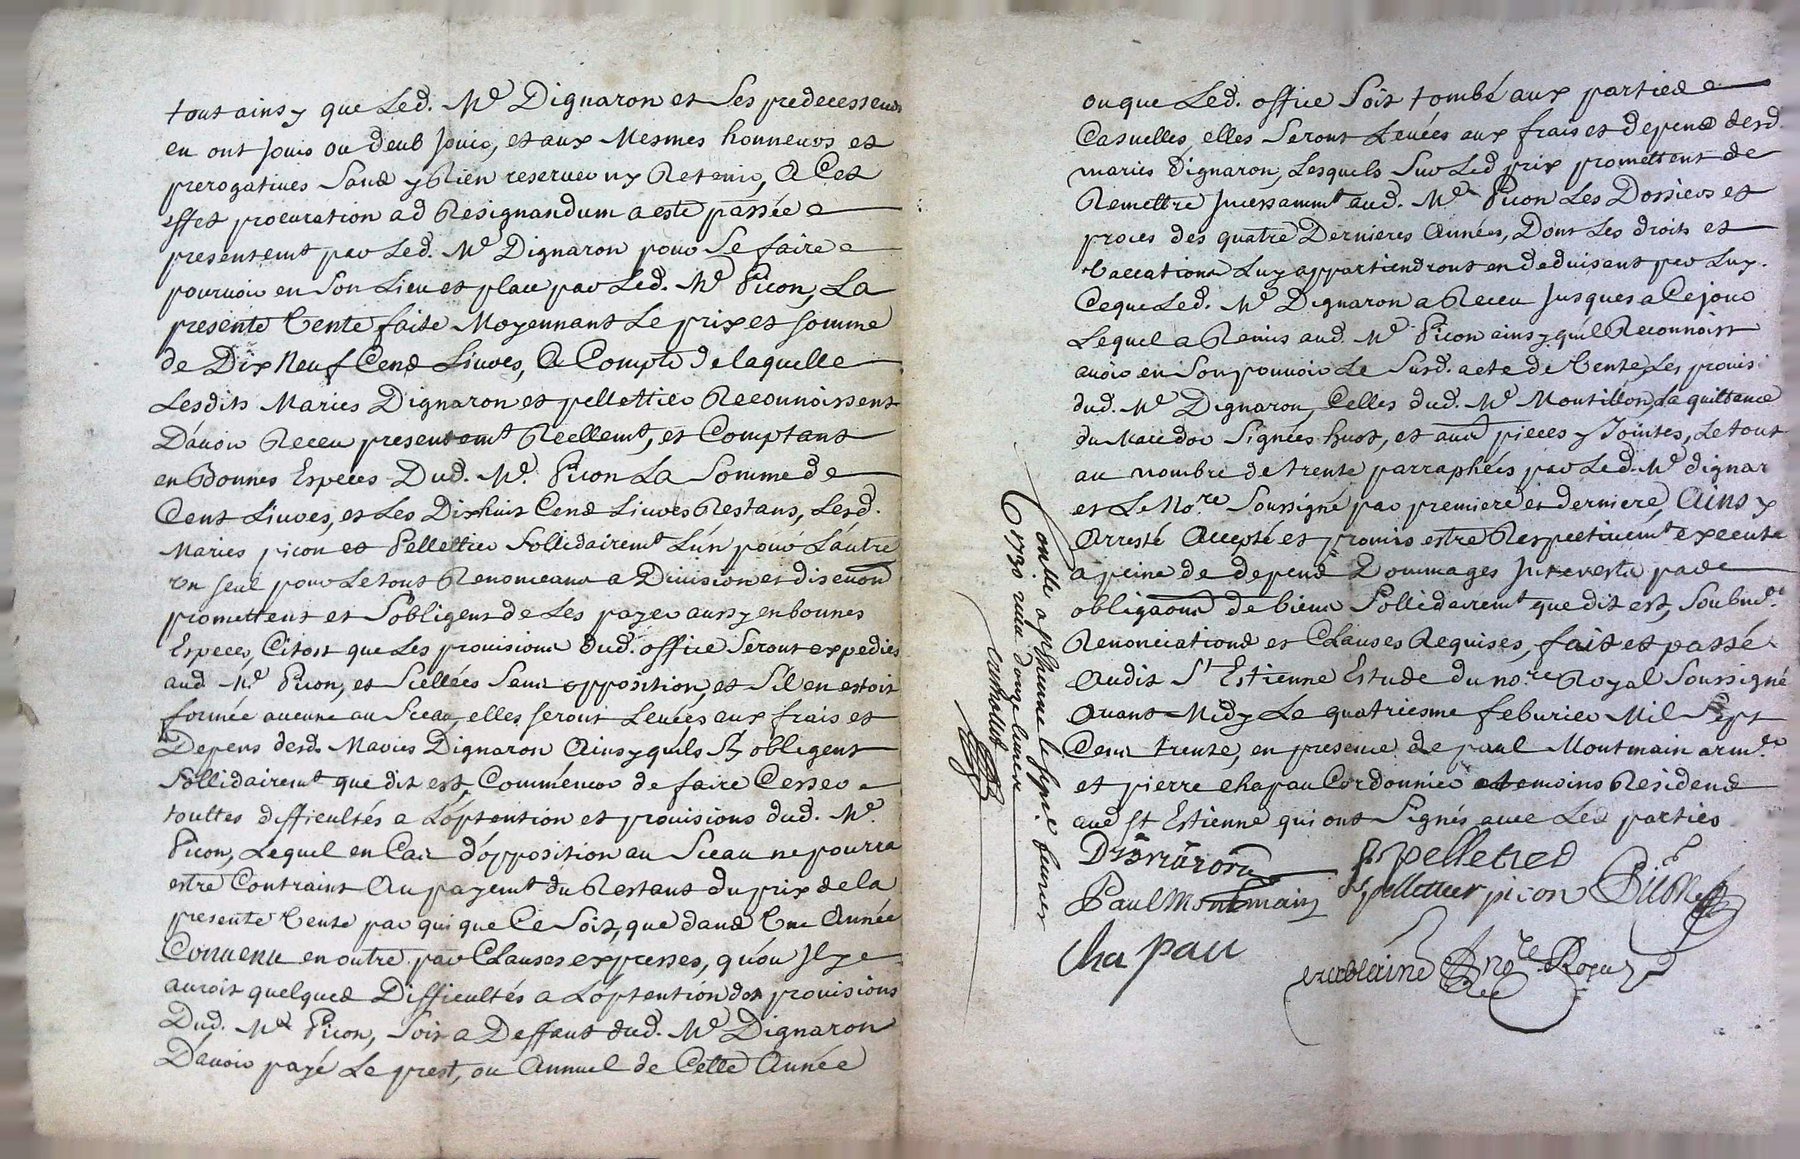 tout ainsy que Led. Me Dignaron et Ses predecesseurs
en ont Jouis ou deub Jouir, et aux Mesmes honneurs et
prerogatives Sans y Rien reserver ny Retenir, A Cet
effet procuration ad Resignandum a esté passée
presentemt par Led. Me Dignaron pour Se faire
pourvoir en Son Lieu et place par Led. Me Picon, La
presente Vente faite Moyennant Le prix et somme
de Dix Neuf Cens Livres, A Compte de laquelle
Lesdits Maries Dignaron et pellettier Reconnoissent
D'avoir Receu presentemt Reellemt, et Comptant
en Bonnes Especes Dud. Me. Picon La Somme de
Cent Livres, et Les Dixhuit Cens Livres Restans, Lesd.
Maries picon et Pellettier Sollidairemt L'un pour L'autre
Un seul pour Le tout Renonceans a Division et discution
promettent et S'obligent de Les payer aussy en bonnes
Especes, Citost que Les provisions dud. office Seront expediés
aud. Me Picon, et Scellées Sans opposition, et S'il en estoit
formée aucune au Sceau, elles seront Levées aux frais et
Depens desd. Maries Dignaron Ainsy quils S'y obligent
Sollidairemt que dit est, Comme aux de faire Cesser
touttes difficultés a L'optention et provisions dud. Me.
Picon, Lequel en Cas d'opposition au Sceau ne pourra
estre Contraint Au payemt du Restant du prix de la
presente Vente par qui que Ce Soit, que dans Une Année
Convenu en outre par Clauses expresses, qu'ou Il y
auroit quelques Difficultés a L'optention des provisions
Dud. Me Picon, Soit a Deffaut dud. Me Dignaron
D'avoir payé Le prest, ou Annuel de Cette Année
ou que Led. office Soit tombé aux parties
Casuelles, elles Seront Levées aux frais et depens desd.
maries Dignaron, Lesquels Sur Led prix promettent de
Remettre Incessammt aud. Me Picon Les Dossiers et
proces des quatre Dernieres Années, Dont Les droits et
Vaccations Luy appartiendront en deduisent par Luy.
Ce que Led. Me Dignaron a Receu Jusques a Ce jour
Lequel a Remis aud. Me Picon ainsy qu'il Reconnoist
avoir en Son pouvoir Le Susd. acte de Vente, Les provis.
dud. Me Dignaron, Celles dud. Me Montillon, La quittance
du Marc dor Signées huot, et aux pieces y Jointes, Le tout
au nombre de trente parraphées par Led. Me dignar
et Le No.re Soussigné par premiere et derniere, Ainsy
Arresté Accepté et promis estre Respectivemt executé
a peine de depens Dommages Interests par
obligaons de biens Sollidairemt que dit est, Soubm.
Renonciations et Clauses Requises, fait et passé
Audit St Estienne Estude du no.re Royal Soussigné
Avant Midy Le quatriesme febvrier Mil Sept
Cens trente, en presence de paul Montmain arm.er
et pierre chapau Cordonnier temoins Residens
aud St Estienne qui ont Signés avec Les parties
Dignaron
pelletier
Paul Montmain
pelletier picon Picon
chapau
No.re Royal
Conlle a st etienne le sept.e fevrier
1730 recu douze livres